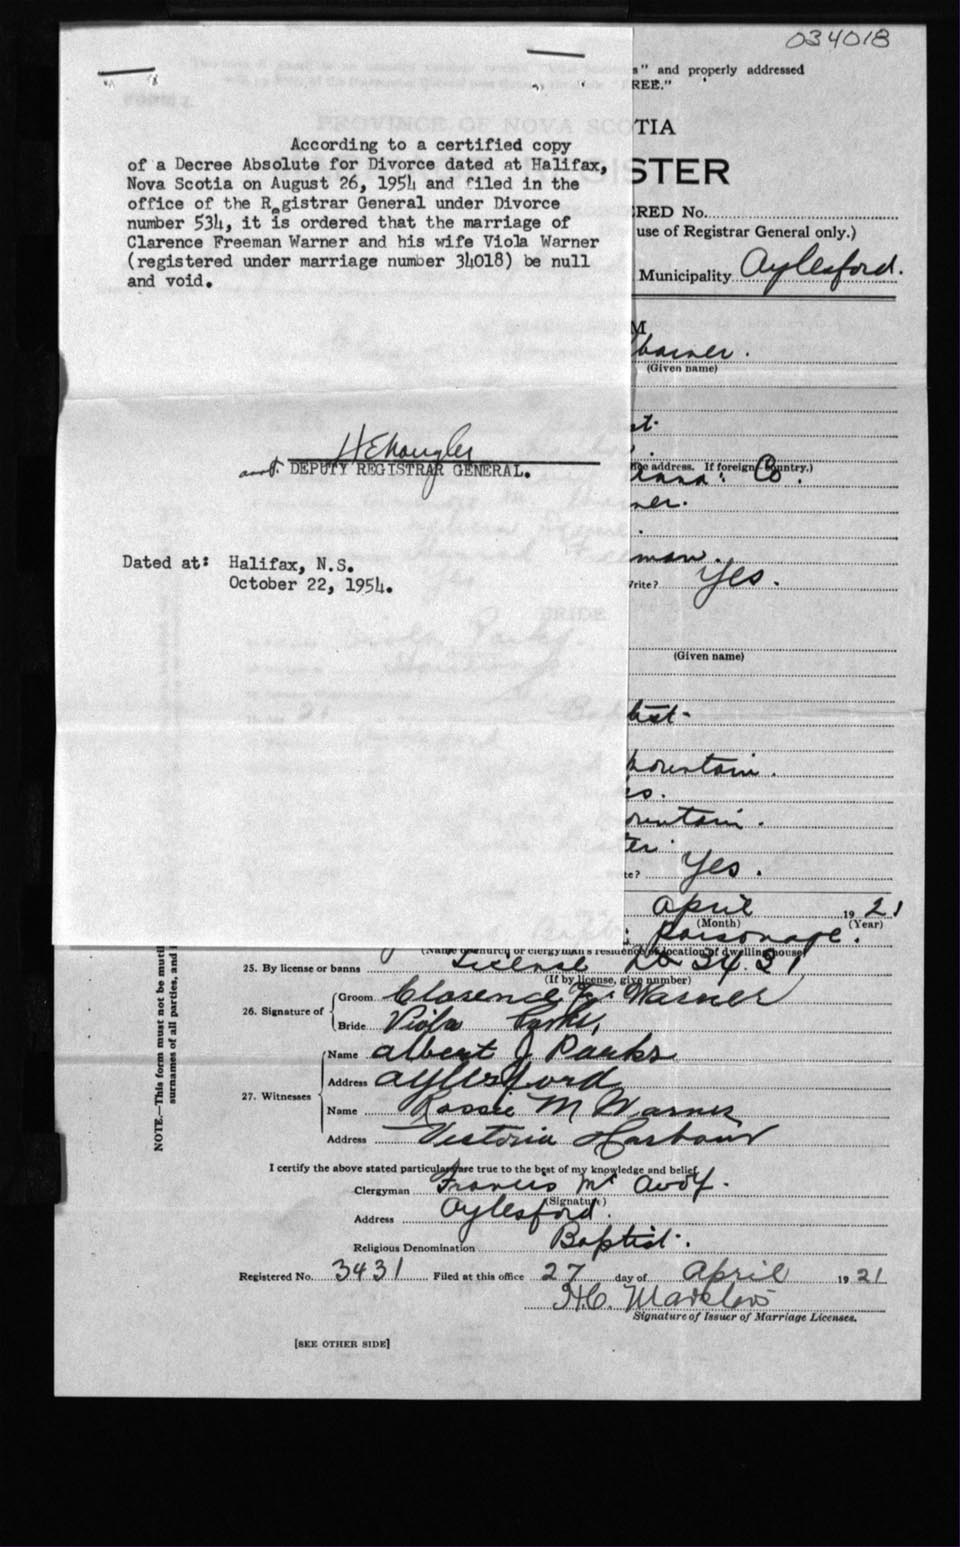 034018
s" and properly addressed
REE."
According to a certified copy
of a Decree Absolute for Divorce dated at Halifax,
Nova Scotia on August 26, 1954 and filed in the
office of the Registrar General under Divorce
number 534, it is ordered that the marriage of
Clarence Freeman Warner and his wife Viola Warner
(registered under marriage number 34018) be null
and void.
TIA
STER
RED No.
use of Registrar General only.)
Municipality Aylesford.
M
(Given name)
st.
address. If foreign Country.)
Anna. Co.
ner.
DEPUTY REGISTRAR GENERAL.
man.
rite? Yes.
Dated at: Halifax, N.S.
October 22, 1954.
BRIDE
(Given name)
tist-
Mountain.
untain.
te? Yes.
April 1921
(Month) (Year)
Parsonage.
(Name of church or clergyman's residence or location of dwelling house)
25. By license or banns License No 3431
(If by license, give number)
26. Signature of
Groom Clarence F. Warner
Bride Viola Parks,
27. Witnesses
Name Albert J Parks
Address Aylesford
Name Rossie M Warner
Address Victoria Harbour
I certify the above stated particulars are true to the best of my knowledge and belief.
Clergyman Francis
(Signature)
Address Aylesford.
Religious Denomination Baptist.
Registered No. 3431 Filed at this office 27 day of April 1921
H.C.
Signature of Issuer of Marriage Licenses.
[SEE OTHER SIDE]
NOTE.—This form must not be mutil
surnames of all parties, and